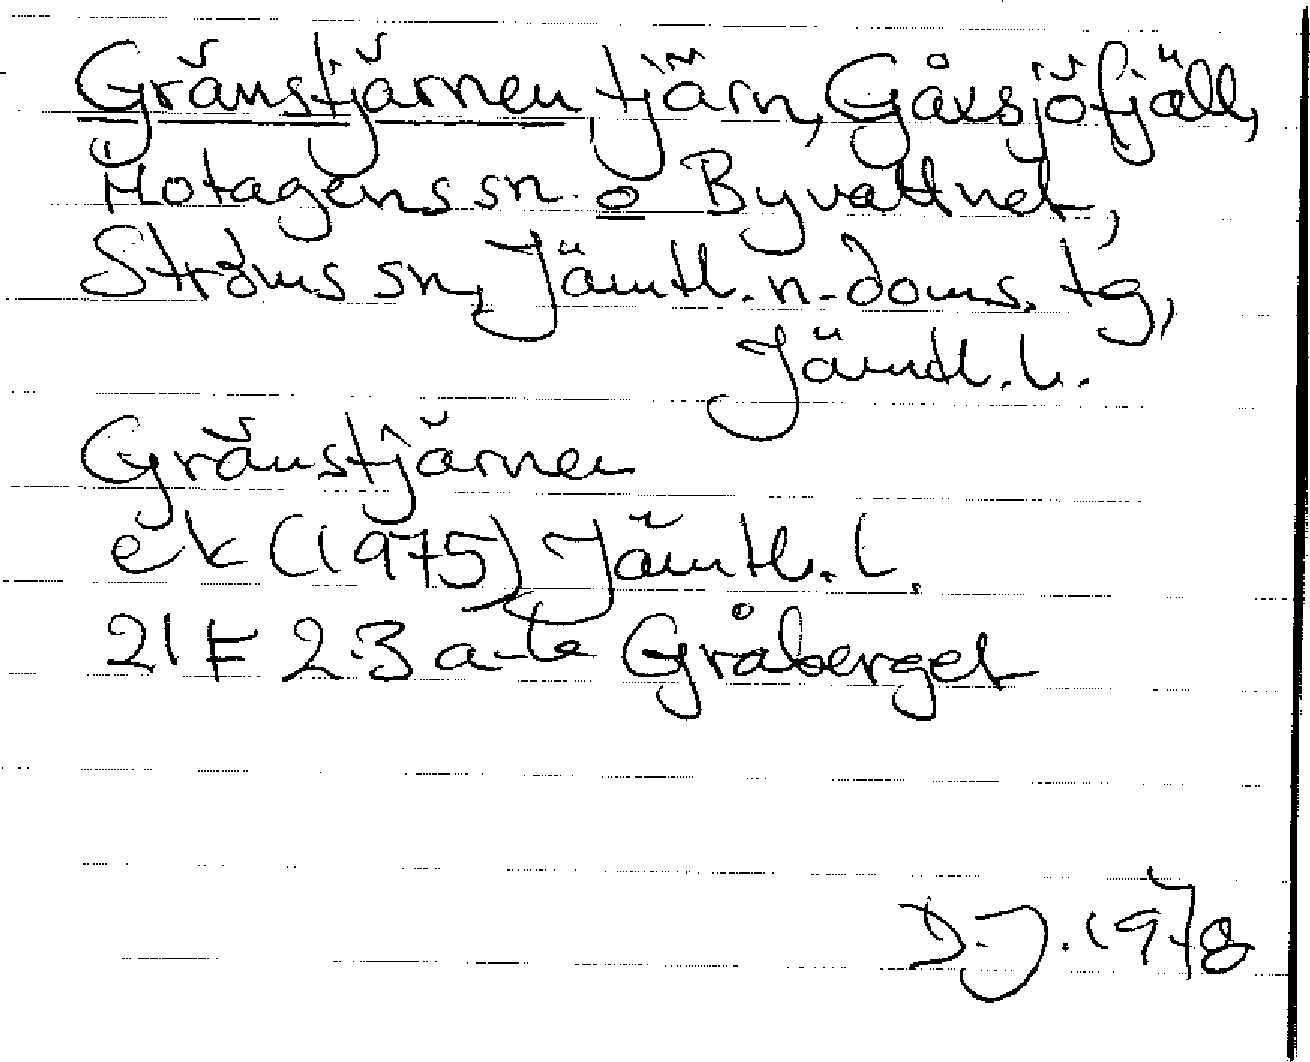 Gränstjärnen tjärn, Gåxsjöfjäll,
Hotagens sn. o Byvattnet,
Ströms sn, Jämtl. n. doms. tg,
Jämtl. l.
Gränstjärnen
ek (1975) Jämtl. l.
21 F 2-3 a-b Gråberget
D.J. 1978